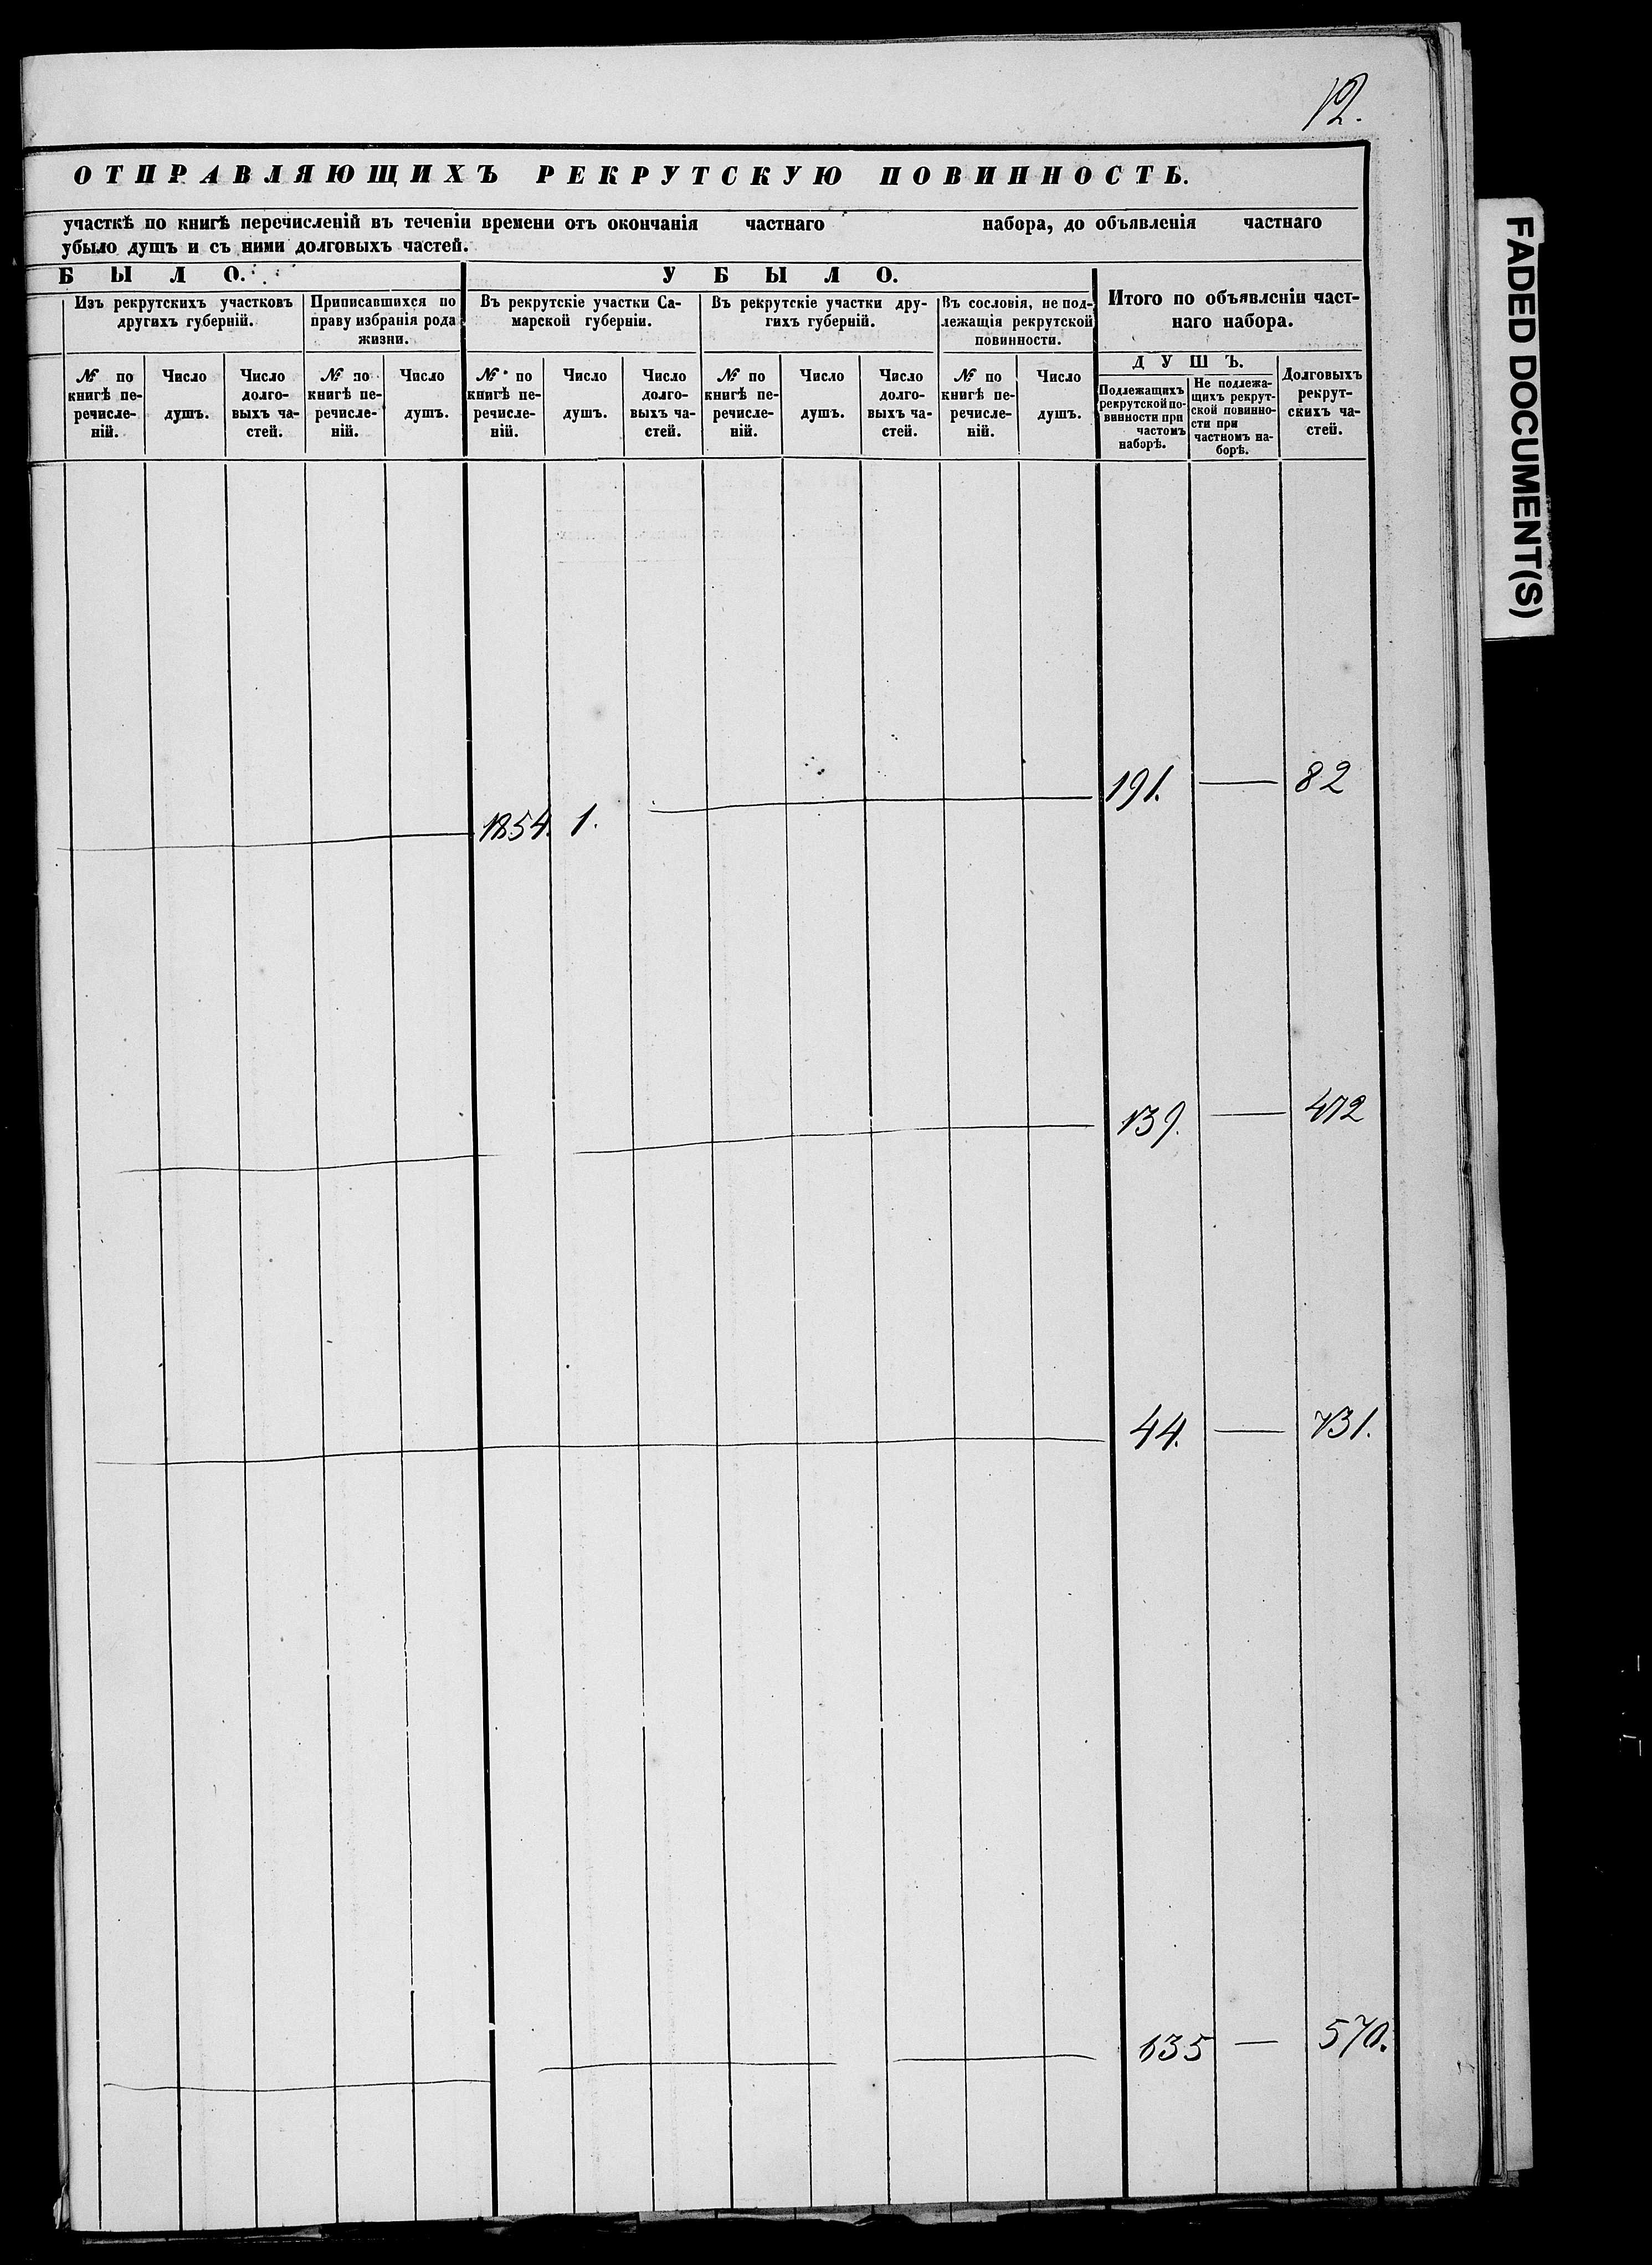 12.
ОТПРАВЛЯЮЩИХЪ РЕКРУТСКУЮ ПОВИННОСТЬ.
участкѣ по книгѣ перечисленій въ теченіи времени отъ окончанія частнаго набора, до объявленія частнаго
убыло душъ и съ ними долговыхъ частей.
БЫЛО. УБЫЛО.
Изъ рекрутскихъ участковъ
другихъ губерній.
Приписавшихся по
праву избранія рода
жизни.
Въ рекрутскіе участки Са-
марской губерніи.
Въ рекрутскіе участки дру-
гихъ губерній.
Въ сословія, не под-
лежащія рекрутской
повинности.
Итого по объявленіи част-
наго набора.
№ по
книгѣ пе-
речисле-
ній.
Число
душъ.
Число
долго-
выхъ ча-
стей.
№ по
книгѣ пе-
речисле-
ній.
Число
душъ.
№ по
книгѣ пе-
речисле-
ній.
Число
душъ.
Число
долго-
выхъ ча-
стей.
№ по
книгѣ пе-
речисле-
ній.
Число
душъ.
Число
долго-
выхъ ча-
стей.
№ по
книгѣ пе-
речисле-
ній.
Число
душъ.
ДУШЪ.
Подлежащихъ
рекрутской по-
винности при
частомъ
наборѣ.
Не подлежа-
щихъ рекрут-
ской повинно-
сти при
частномъ на-
борѣ.
Долговыхъ
рекрут-
скихъ ча-
стей.
1854. 1. — 191. — 82
139. — 472
44. — 731.
135 — 570.
FADED DOCUMENT(S)